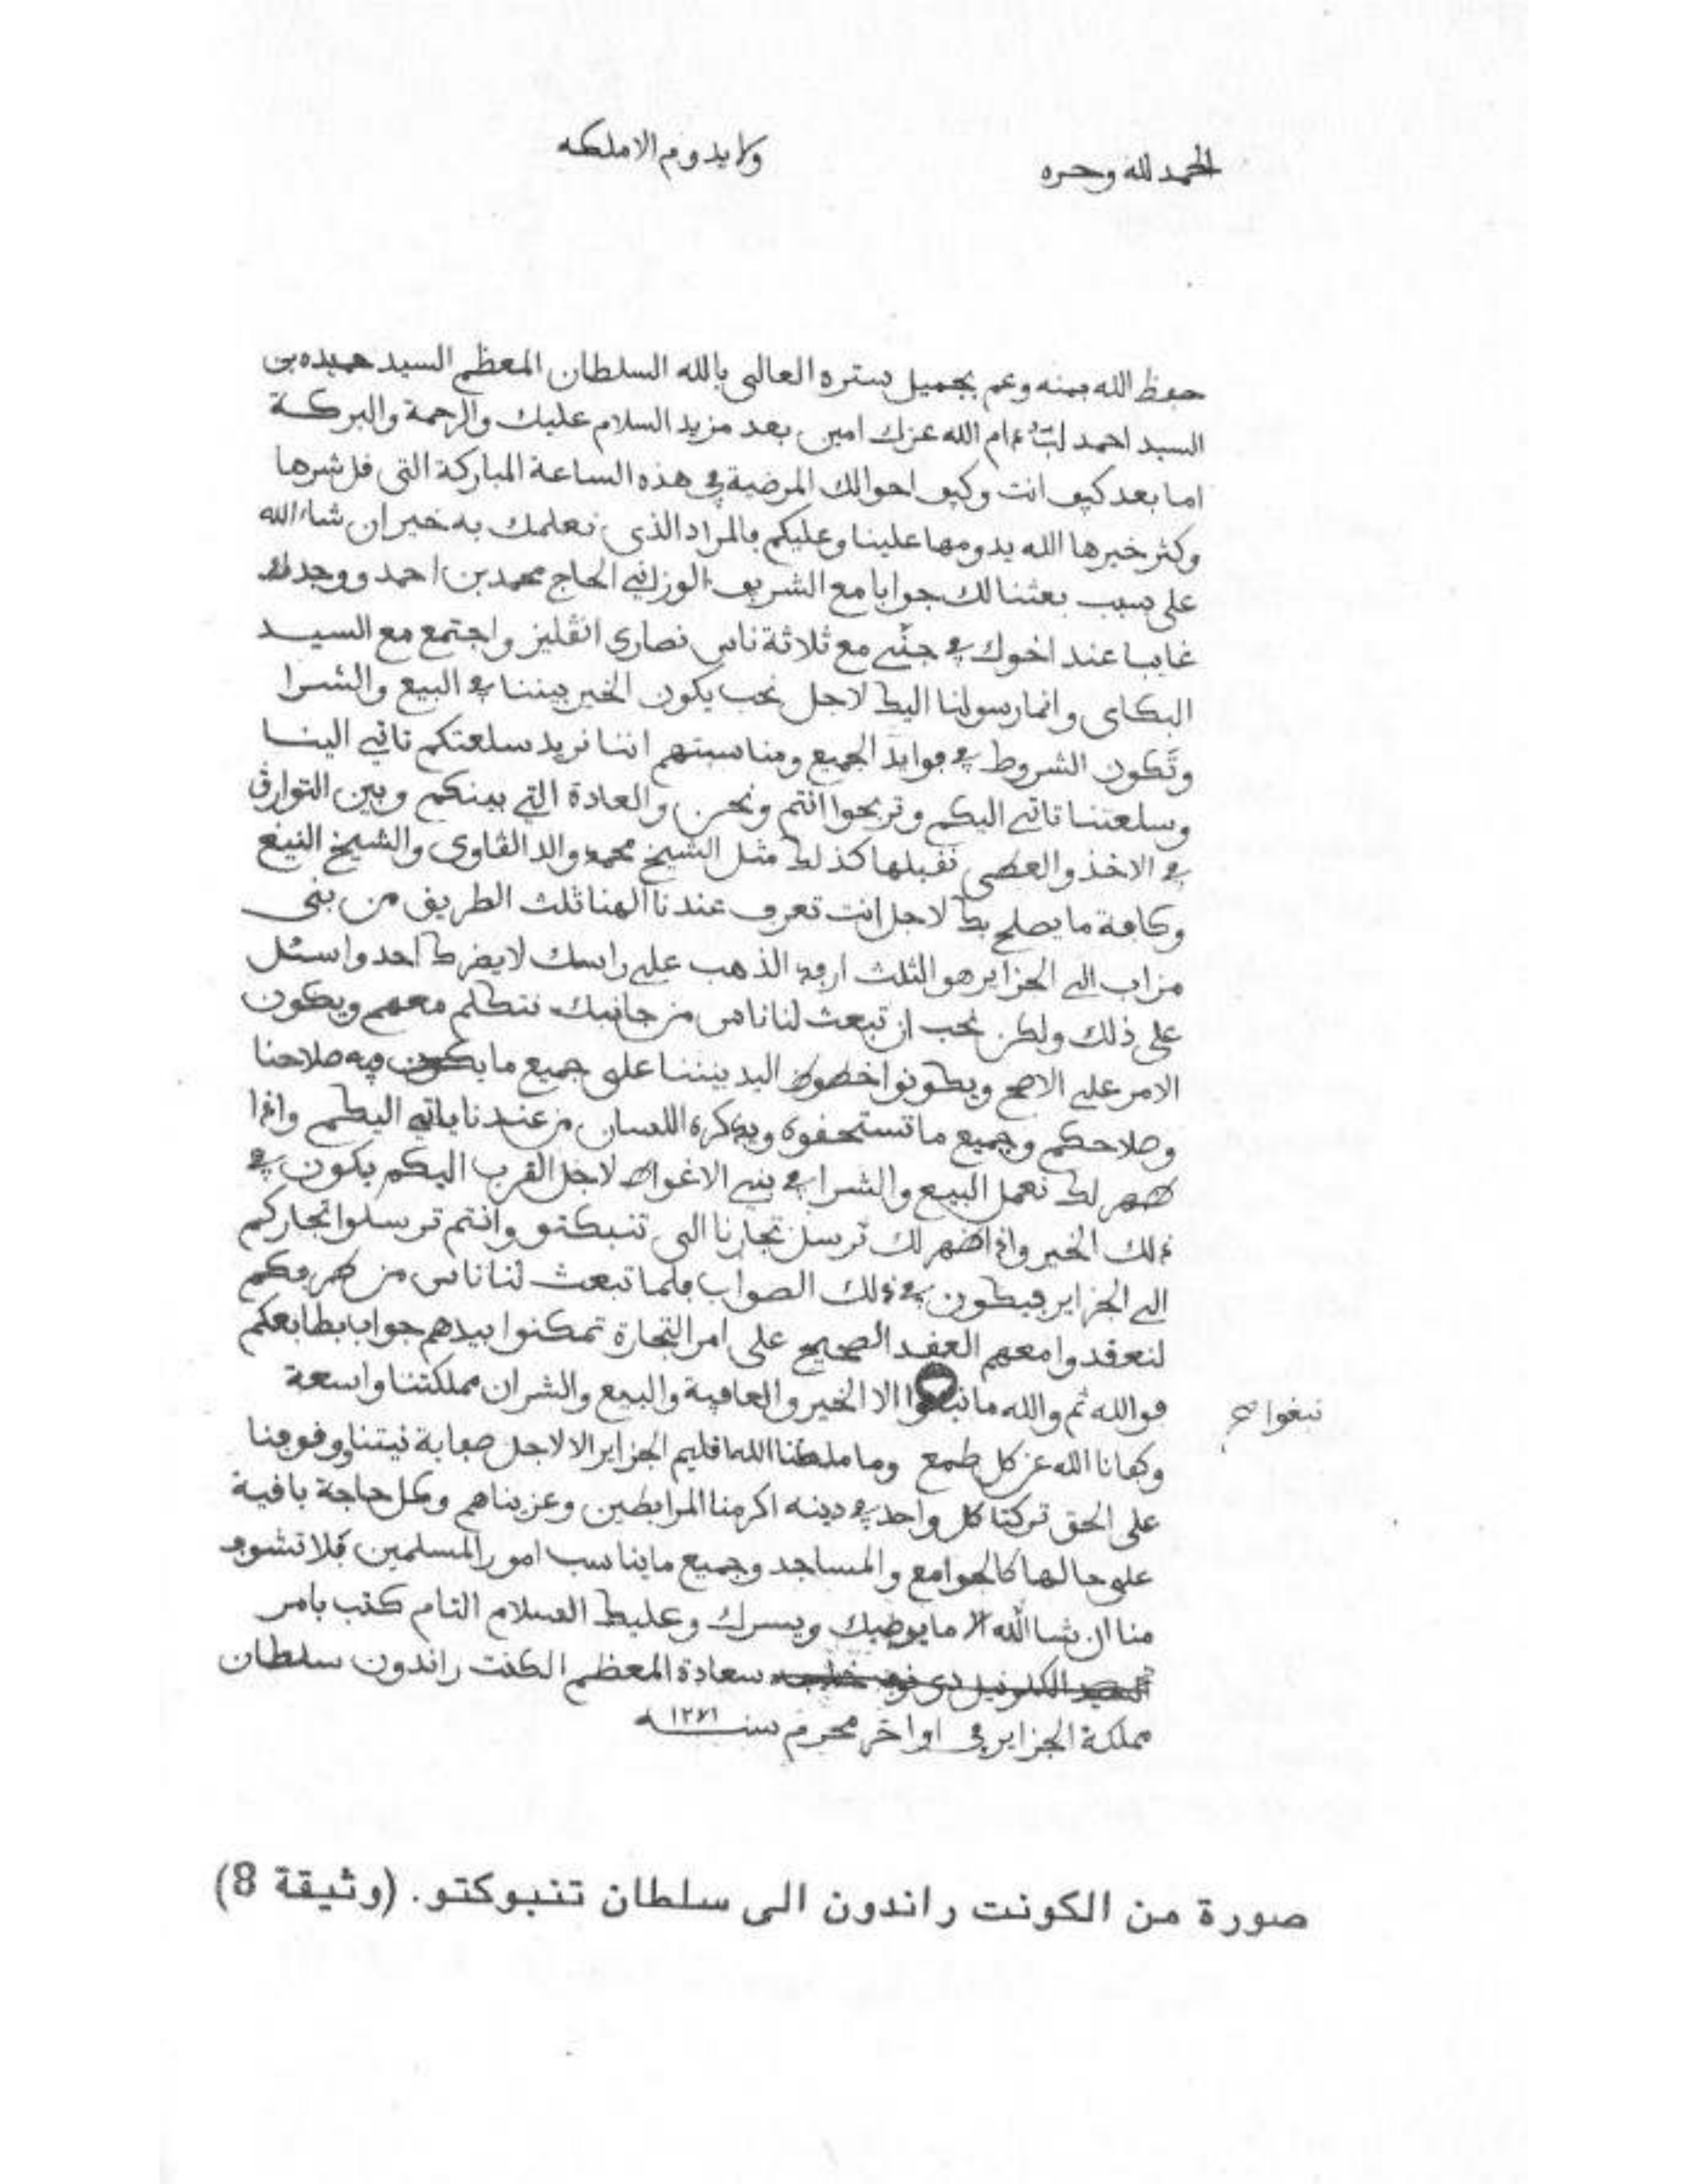 الحمد لله وحده
ولا يدوم الا ملكه
حفظ الله بمنه وعم بجميل ستره العالى بالله السلطان المعظم السيد حميده بن
السيد احمد لبّ دام الله عزك امين بعد مزيد السلام عليك والرحمة والبركة
اما بعد كيف انت وكيف احوالك المرضية في هذه الساعة المباركة التى قل شرها
وكثر خيرها الله يدومها علينا وعليكم فالمراد الذى نعلمك به خير ان شاء الله
على سبب بعثنا لك جوابا مع الشريف الوزاني الحاج محمد بن احمد ووجدك
غايبا عند اخوك في جنّي مع ثلاثة ناس نصارى انڨليز واجتمع مع السيد
البكاى وانما رسولنا اليك لاجل نحب يكون الخير بيننا في البيع والشرا
وتكون الشروط في فوايد الجميع ومناسبتهم اننا نريد سلعتكم تاتي الينا
وسلعتنا تاتي اليكم وتربحوا انتم ونحن والعادة التي بينكم وبين التوارق
في الاخذ والعطى نقبلها كذلك مثل الشيخ محمد والد الڨاوى والشيخ النيغ
وكافة ما يصلح بك لاجل انت تعرف عندنا الهنا ثلث الطريق من بنى
مزاب الى الجزاير هو الثلث ارفد الذهب على راسك لا يضرك احد واسئل
على ذلك ولكن نحب ان تبعث لنا ناس من جانبك نتكلم معهم ويكون
الامر على الاصح ويكونوا خطوط اليد بيننا على جميع ما يكون فيه صلاحنا
وصلاحكم وجميع ما تستحقوه ويذكره اللسان من عندنا ياتي اليكم واذا
ظهر لك نعمل البيع والشرا في بني الاغواط لاجل القرب اليكم يكون في
ذلك الخير واذا ظهر لك نرسل تجارنا الى تنبكتو وانتم ترسلوا تجاركم
الى الجزاير فيكون في ذلك الصواب فلما تبعث لنا ناس من طرفكم
لنعقدوا معهم العقد الصحيح على امر التجارة تمكنوا بيدهم جواب بطابعكم
فوالله ثم والله ما نبغوا الا الخير والعافية والبيع والشرا ان مملكتنا واسعة
نبغوا صح
وكفانا الله عن كل طمع وما ملكنا الله اقليم الجزاير الا لاجل صفاية نيتنا ووقوفنا
على الحق تركنا كل واحد في دينه اكرمنا المرابطين وعزيناهم وكل حاجة باقية
على حالها كالجوامع والمساجد وجميع ما يناسب امور المسلمين فلا تشوف
منا ان شا الله الا ما يرضيك ويسرك وعليك السلام التام كتب بامر
سعادة المعظم الكنت راندون سلطان
مملكة الجزاير في اواخر محرم سنه ١٢٧١
صورة من الكونت راندون الى سلطان تنبوكتو. (وثيقة 8)